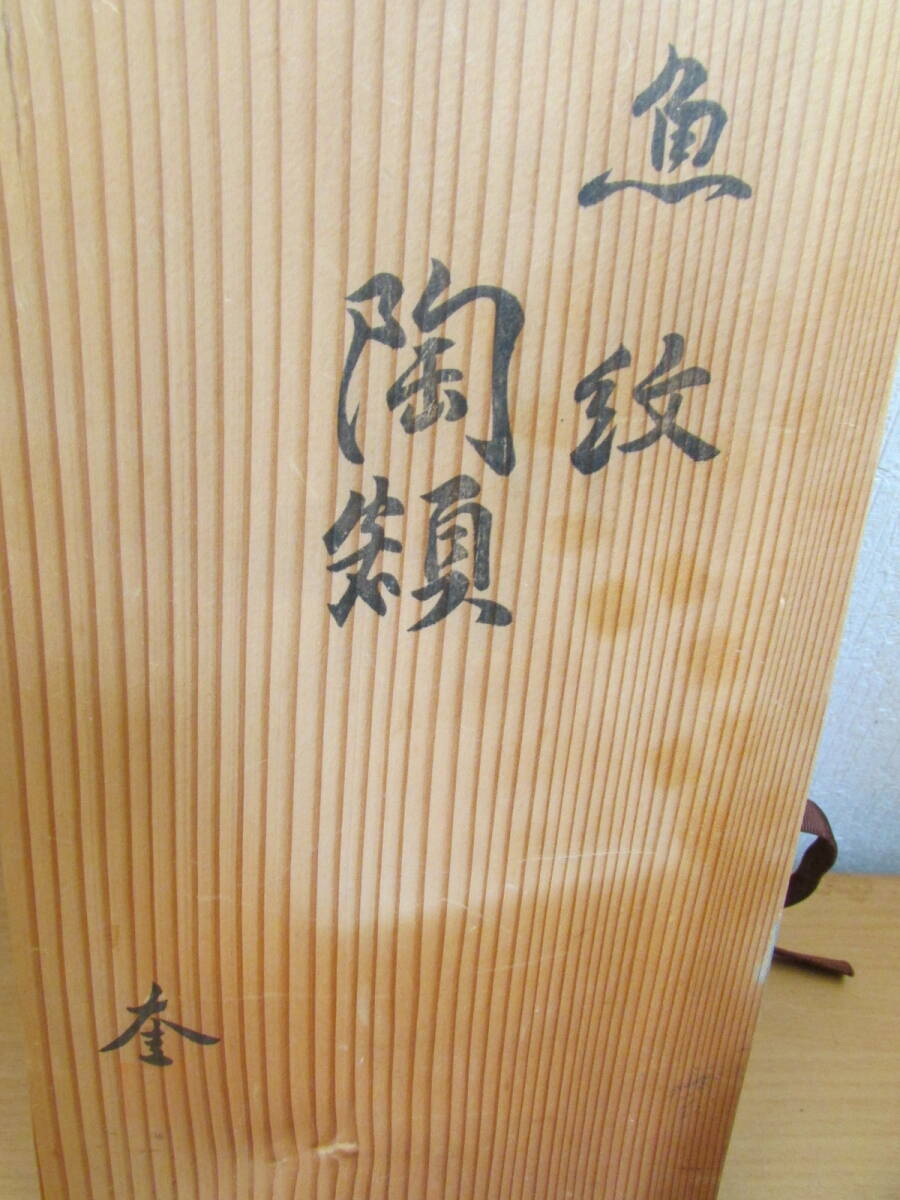 魚紋
陶額
奎